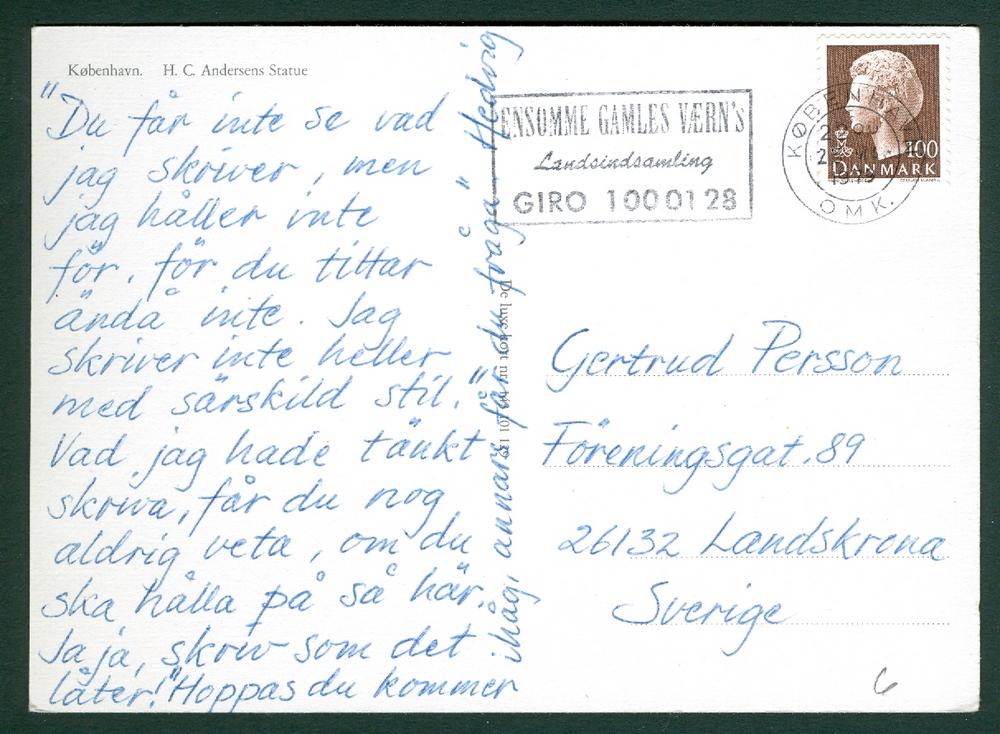 København. H. C. Andersens Statue
"Du får inte se vad
jag skriver, men
jag håller inte
för, för du tittar
ändå inte. Jag
skriver inte heller
med särskild stil."
Vad jag hade tänkt
skriva, får du nog
aldrig veta, om du
ska hålla på så här.
Ja ja, skriv som det
låter!" Hoppas du kommer
ihåg, annars får du fråga" Hedvig
De luxe-kort nr.
ENSOMME GAMLES VÆRN's
Landsindsamling
GIRO 1000128
KØBENHAVN
OMK.
100
DANMARK
Gertrud Persson
Föreningsgat. 89
26132 Landskrona
Sverige
6